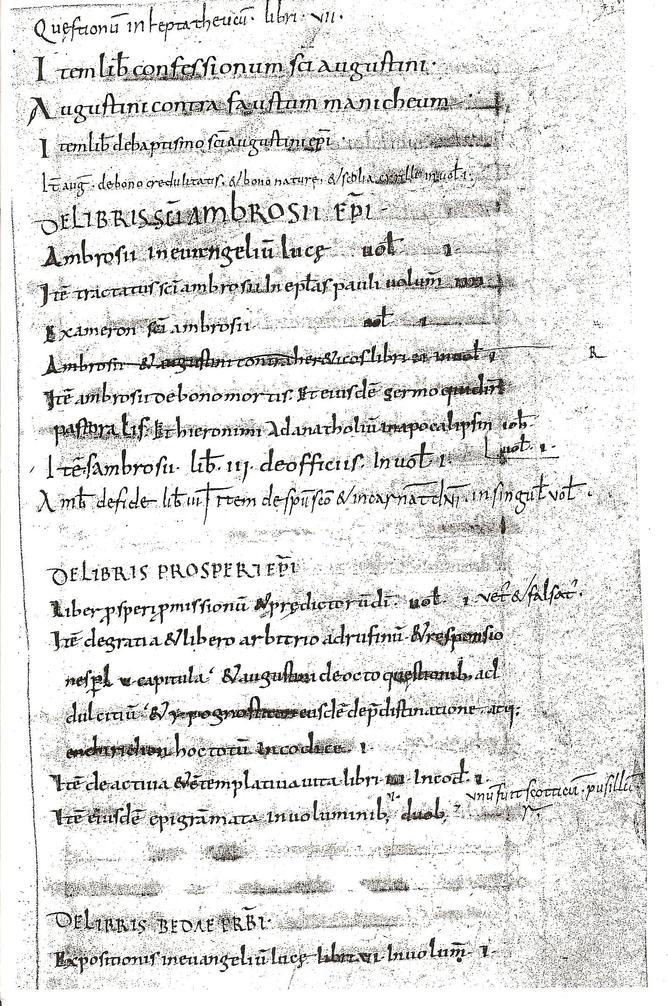 Questionū in heptatheucū · libri · vii ·
Item lib̄ confessionum sc̄i augustini ·
Augustini contra faustum manicheum
Item lib̄ de baptismo sc̄i augustini ep̄i ·
It̄ auḡ · de bono credulitatis · & bono naturę · & in uol̄ · i ·
DE LIBRIS SC̄I AMBROSII EP̄I ·
Ambrosii in euuangeliū lucę uol̄ i ·
Itē tractatus sc̄i ambrosii In epl̄as pauli uolum̄ iiii
Exameron sc̄i ambrosii uol̄ i
Ambrosii & augustini contra her&icos libri in uol̄ i R
Itē ambrosii de bono mortis · Et eiusdē sermo
pastoralis · Et hieronimi Ad anatholiū in apocalipsin ioh̄ ·
uol̄ · i ·
Itē s ambrosii · lib̄ · iii · de officiis · In uol̄ i ·
Amb̄ de fide lib̄ Item de sp̄u sc̄o & incarnat in singul̄ uol̄ ·
DE LIBRIS PROSPERI EP̄I
Liber ꝓsperi ꝓmissionū & prędictorū dī · uol̄ i uet̄ & falsat̄ ·
Itē de gratia & libero arbitrio ad rufinū & responsio
nes capitula · & augustini de octo questionib; ad
dulcitiū · & ypognosticon eiusdē de p̄distinatione atq;
enchiridion hoc totū In codice · i ·
Itē de actiua & cōtemplatiua uita libri iii · In cod̄ · i ·
unū fuit scotticū · pusillū
Itē eiusdē epigrāmata in uoluminib; duob;
DE LIBRIS BEDAE PRB̄I ·
Expositionis in euangeliū lucę libri vi In uolum̄ · i ·